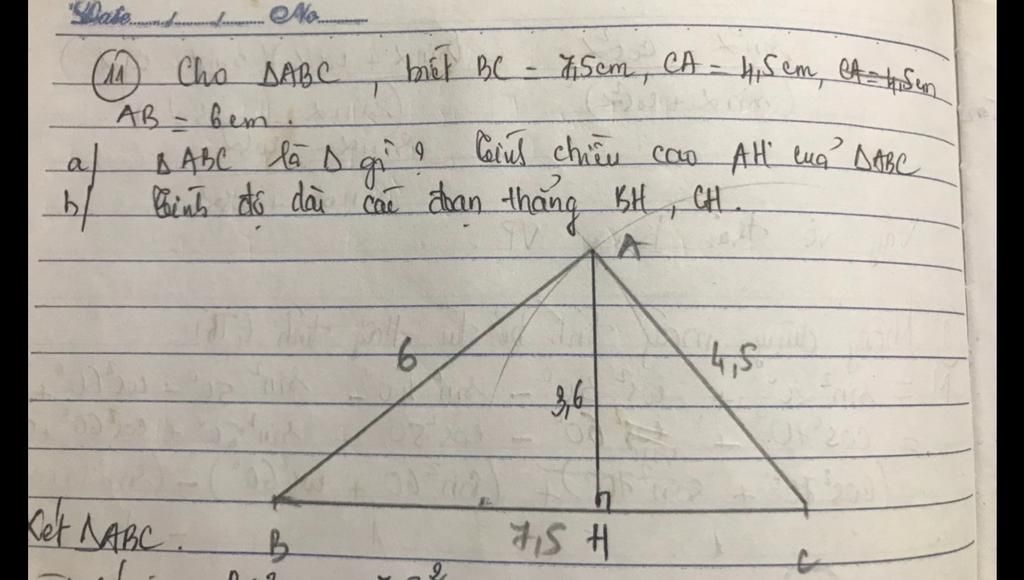 Date...../...../..... No.....
11 Cho ΔABC, biết BC = 7,5cm, CA = 4,5cm, CA = 4,5cm
AB = 6cm.
a/ ΔABC là Δ gì? Tính chiều cao AH của ΔABC
b/ Tính độ dài các đoạn thẳng BH, CH.
A
6
4,5
3,6
B
7,5
H
C
Xét ΔABC.